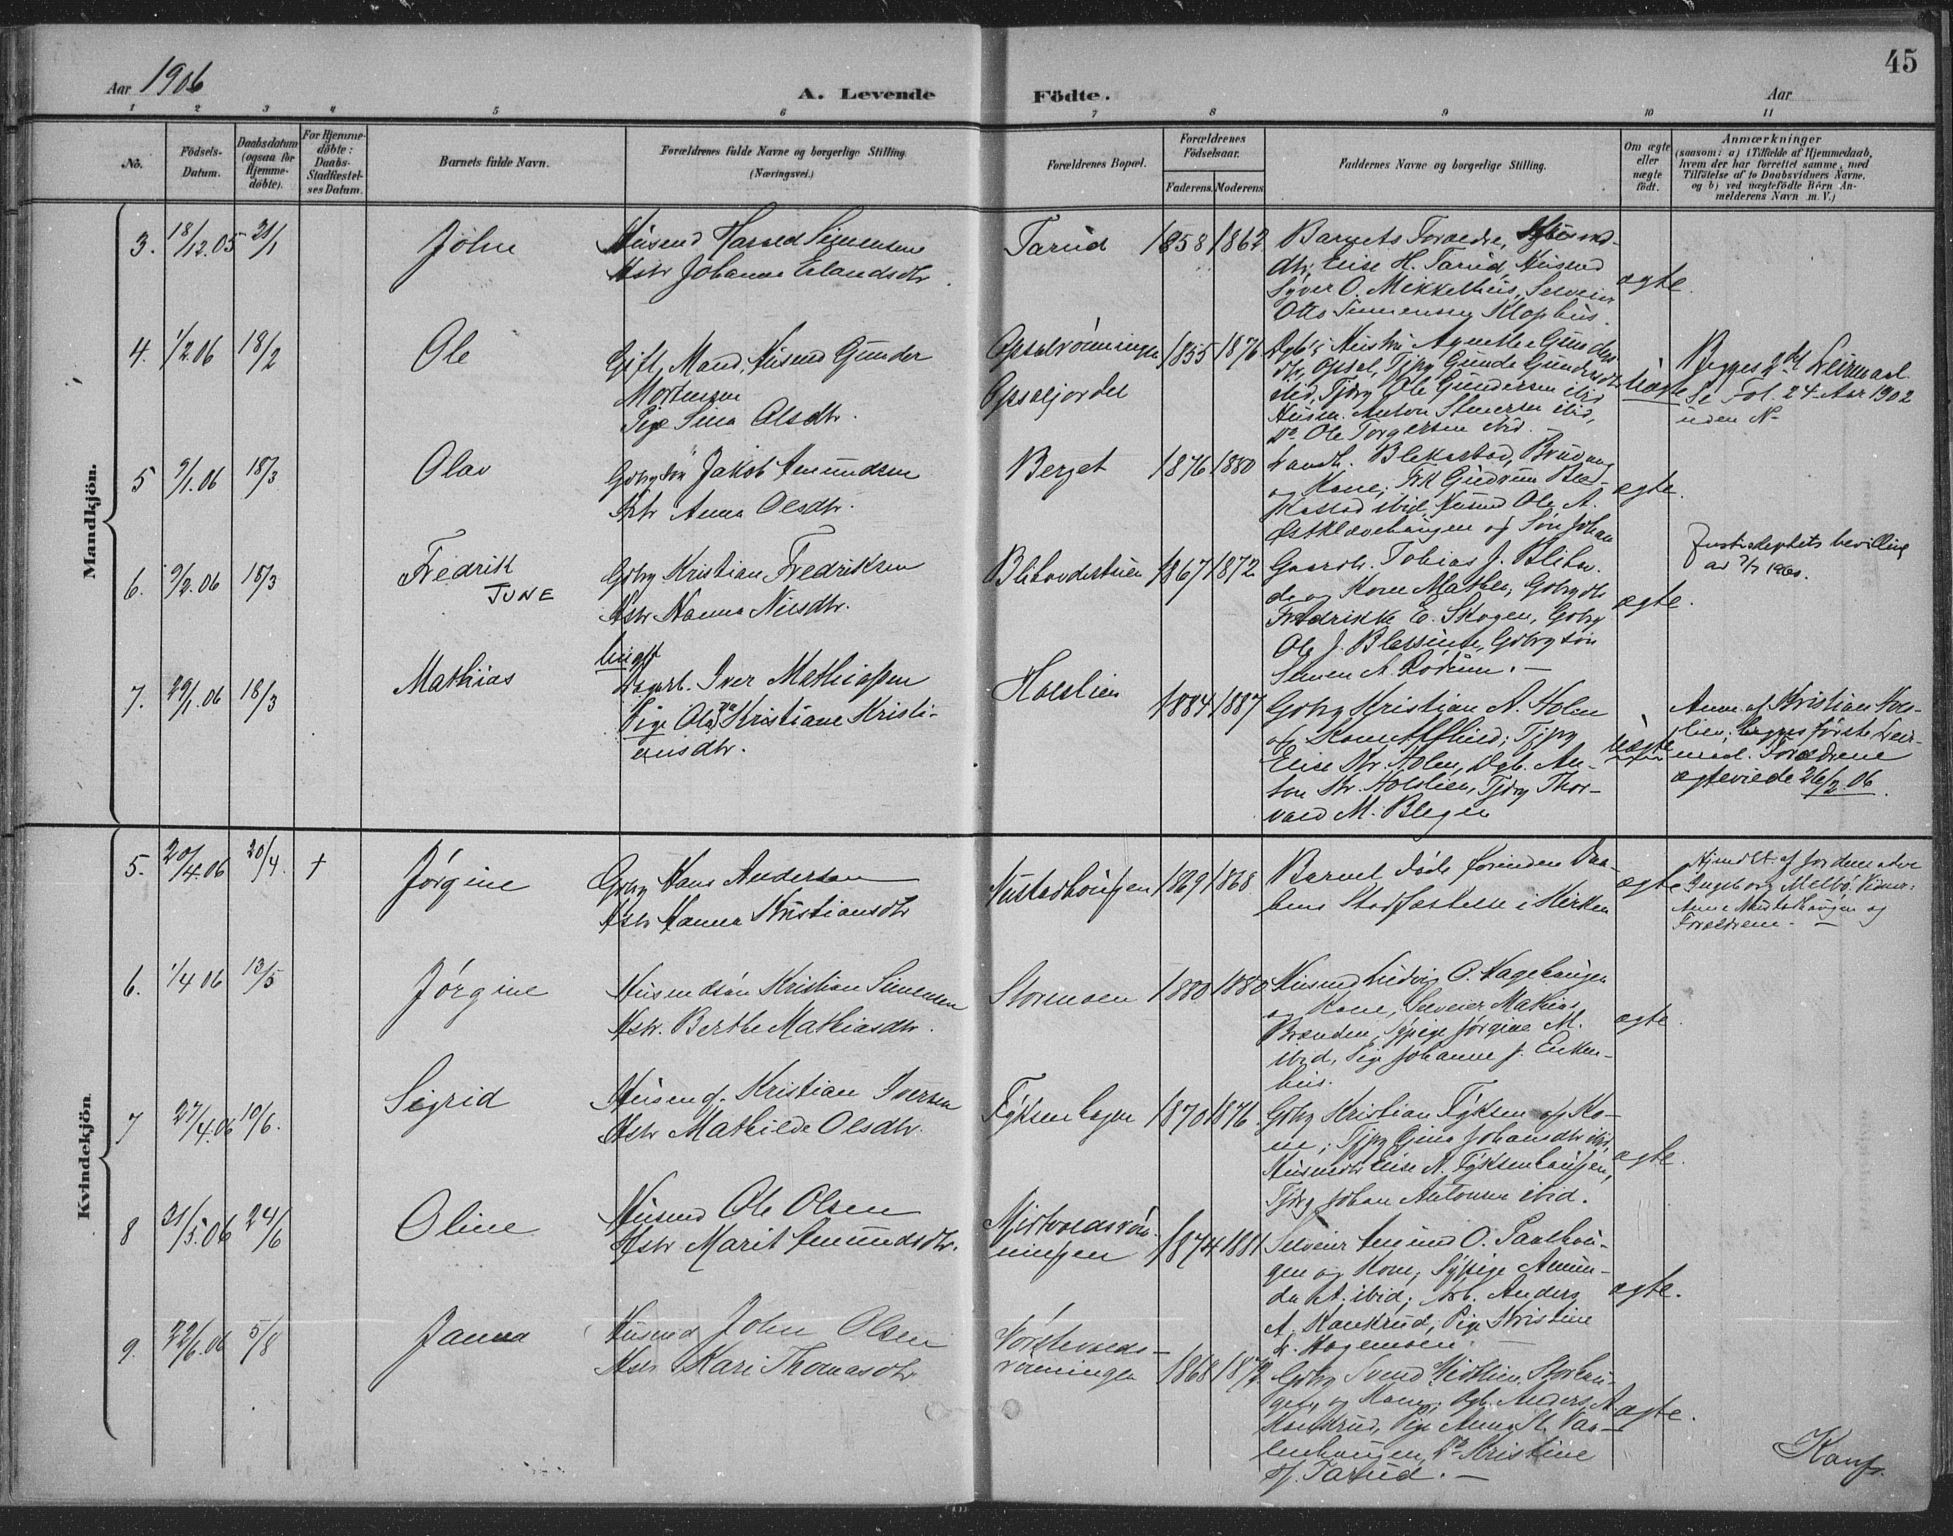 Aar 1906
A. Levende Födte.
Aar
45
1 2 3 4 5 6 7 8 9 10 11
No.
Födsels-
Datum.
Daabsdatum
(ogsaa for
Hjemme-
döbte).
For Hjemme-
döbte:
Daabs-
Stadfæstel-
ses Datum.
Barnets fulde Navn.
Forældrenes fulde Navne og borgerlige Stilling.
(Næringsvei.)
Forældrenes Bopæl.
Forældrenes
Födselsaar.
Faderens. Moderens.
Faddernes Navne og borgerlige Stilling.
Om ægte
eller
uægte
födt.
Anmærkninger
(saasom: a) i Tilfælde af Hjemmedaab,
hvem der har forrettet samme, med
Tilföielse af to Daabsvidners Navne,
og b) ved uægtefödte Börn An-
melderens Navn m. V.)
Mandkjön.
3. 18/12.05 21/1
John
Husmd Harald Simensen
Hstr Johanne Erlandsdtr.
Tarud
1858 1862
Barnets Forældre,
dtr. Elise H. Tarud, Husmd
Syver O. Mikkelhus, Selveier
Otto Simensen Klophus.
ægte.
4. 1/2.06 18/2
Ole
Gift Mand, Husmd Gunder
Mortensen
Pige Sina Olsdtr.
Opsalrönningen
Opsaljordet
1855 1876
Dgb's Hustru Agnethe Gunders
dtr. Opsal, Tjpg Gunda Gundersdtr
ibid, Tjdrg Ole Gundersen ibid
Husm. Anton Stenersen ibid,
Do Ole Torgersen ibid.
uægte
Begges 2det Leiermaal
Se Fol. 24 Aar 1902
uden No
5 9/1.06 18/3
Olav
Gbrg sön Jakob Amundsen
Hstr Anna Olsdtr.
Berget
1876 1880
Landh. Blekastad, Brudvang
og Kone, Frk Gudrun Ble-
kastad ibid, Husmd Ole A.
Östklævehaugen og Sön Johan
ægte.
6. 9/2.06 18/3
Fredrik
JUNE
Gbrg Kristian Fredriksen
Hstr Hanna Nilsdtr.
1867 1872
Gaardbr. Tobias J. Blihov-
de og Kone Mathea; Gbrgdtr
Fredrikke E. Skogen, Gbrg
Ole J. Blessum, Gbrg sön
Simen A. Rodum. —
ægte.
Justisdeptets bevilling
av 7/7 1960.
7. 29/1.06 18/3
Mathias
Ungk
Dagarb. Iver Mathiassen
Pige Olava Kristiane Kristi-
ansdtr.
Holslien
1884 1887
Gbrg Kristian N. Holen
og Kone Alflind; Tjpg
Elise Kr. Holen, Dgb. An-
ton Kr. Holslien, Tjdrg Thor-
vald M. Blegen
uægte
Anm. af Kristian Hols-
lien; begges første Leier-
maal. Forældrene
ægteviede 26/2.06.
Kvindekjön
5. 20/4.06 20/4. †
Jørgine
Gbrg Hans Andersen
Hstr Hanna Kristiansdtr
Nustadhaugen
1869 1868
Barnet døde forinden Daa-
bens Stadfæstelse i Kirken
ægte
Hjemdbt. af Jordemoder
Ingeborg Melbö. Vidner:
Anne Nustadhaugen og
Forældrene. —
6. 1/4 06 13/5
Jørgine
Husmdsön Kristian Simensen
Hstr. Berthe Mathiasdtr.
Stormoen
1880 1880
Husmd Ludvig O. Hagehaugen
og Kone, Selveier Mathias
Brænden, Sypige Jørgine M.
ibid, Pige Johanne J.
hus.
ægte.
7 27/4.06 10/6.
Sigrid
Husmd. Kristian Iversen
Hstr Mathilde Olsdtr.
Fyksenhagen
1870 1876
Gbrg Kristian Fyksen og Ko-
ne; Tjpg Gina Johansdtr ibid,
Husmdtr Elise N. Fyksenhaugen,
Tjdrg Johan Antonsen ibid.
ægte.
8 31/5.06 24/6
Oline
Husmd Ole Olsen
Hstr Marit Amundsdtr.
Mistvoldsrön-
ningen
1874 1881
Selveier Amund O. Paalhau-
gen og Kone; Sypige Amun-
da A. ibid; Arb. Anders
A. Kankrud, Pige Kristine
K. Hagemoen.
ægte.
9. 22/6.06 5/8
Janna
Husmd John Olsen
Hstr Kari Thomasdtr
rönningen
1868 1872
Gbrg Svend Midtlien, Storhau-
gen, og Kone; Dgb. Anders A.
Kankrud, Pige Anna St. Vaa-
lenhaugen, Do Kristine
H. Tarud. —
ægte.
Konf.